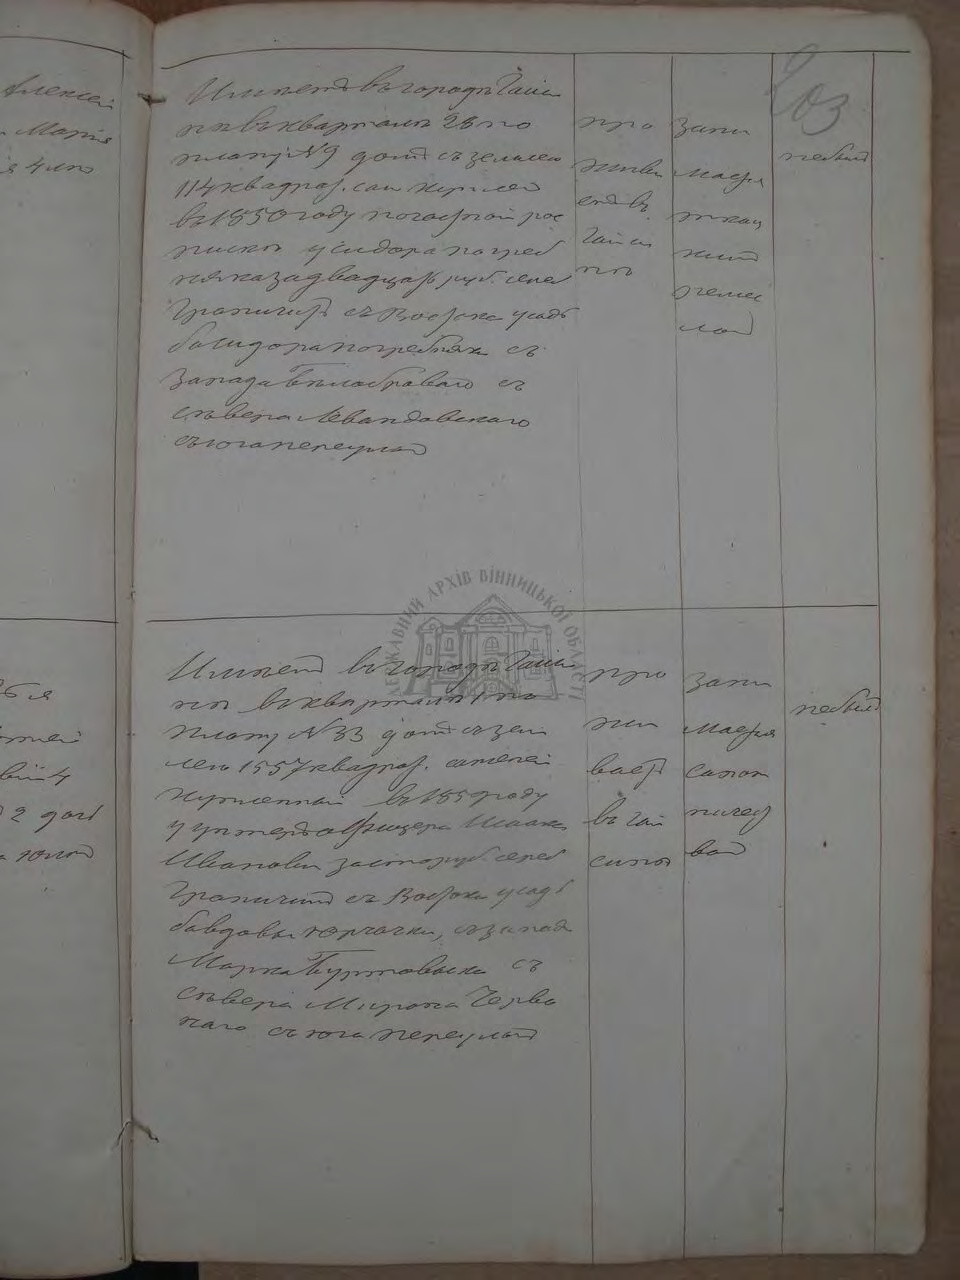 203
Алексей
Мария
Имеетъ въ городѣ Гайси
нѣ въ кварталѣ 28 по
плану №9 домъ съ землею
114 квадрат. саж. куплен
въ 1850 году по частной рос
писки у Сидора Погреб
няка за двадцать руб. сереб
Граничитъ съ Востока усадь
ба Сидора Погребняка съ
Запада Бѣлоброваго съ
сѣвера Левандовскаго
съ юга переулкъ
про
жива
етъ въ
Гайси
нѣ
Зани
мается
ткац
кимъ
ремес
лом
небылъ
ДЕРЖАВНИЙ АРХІВ ВІННИЦЬКОЇ ОБЛАСТІ
Имѣетъ въ городѣ Гайси
нѣ въ кварталѣ 1 по
плану №33 домъ съ зем
лею 1557 квадрат. саженей
купленный въ 1859 году
у унтеръ офицера Исаака
Иванова за сто руб. сереб
Граничитъ съ Востока усадь
ба вдовы Юрчачки, съ запада
Марка
сѣвера Мирона Черва
наго съ юга переулкъ
про
жи
ваетъ
въ Гай
синѣ
зани
мается
сапож
ничест
вом
небылъ
2 дочь